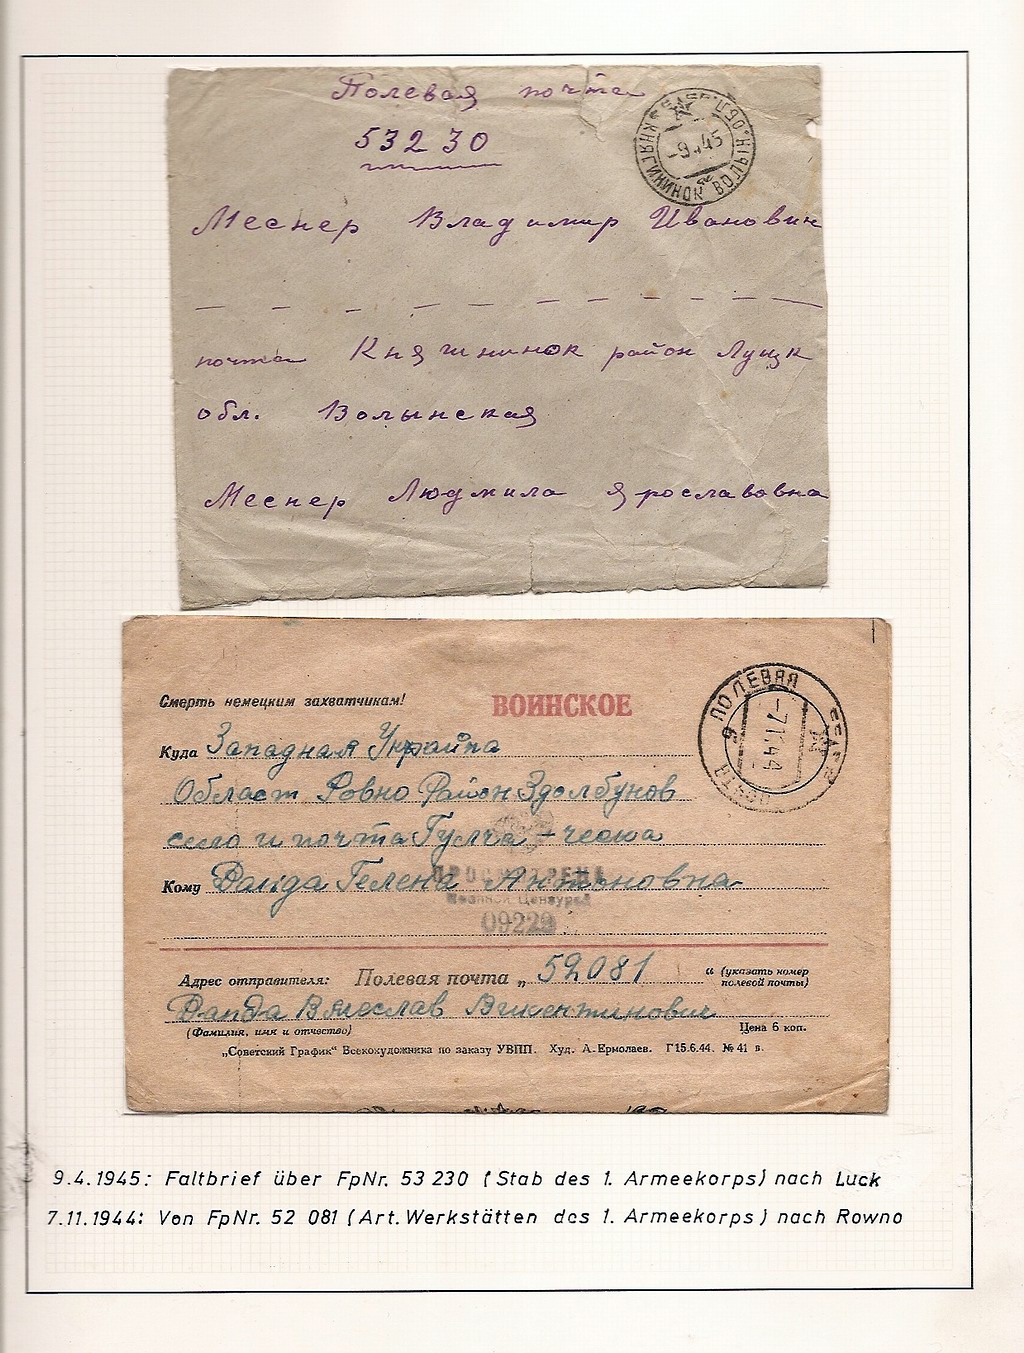 Полевая почта
53230
Меснер Владимир Иванович
почта Княгининок район Луцк
обл. Волынская
Меснер Людмила Ярославовна
КНЯГИНИНОК ВОЛЫН. ОБЛ.
-9 4 45
Смерть немецким захватчикам!
ВОИНСКОЕ
ПОЛЕВАЯ ПОЧТА
-7 11 44
Куда Западная Украіна
Област Ровно Район Здолбунов
село и почта Гулча-ческа
Кому Ванда Гелена Антоновна
ПРОСМОТРЕНО
Военной Цензурой
09229
Адрес отправителя: Полевая почта „ 52081 “ (указать номер полевой почты)
Ванда Вячеслав Викентинович
(Фамилия, имя и отчество) Цена 6 коп.
„Советский График“ Всекохудожника по заказу УВПП. Худ. А. Ермолаев. Г15.6.44. № 41 в.
9.4.1945: Faltbrief über FpNr. 53 230 (Stab des 1. Armeekorps) nach Luck
7.11.1944: Von FpNr. 52 081 (Art. Werkstätten des 1. Armeekorps) nach Rowno